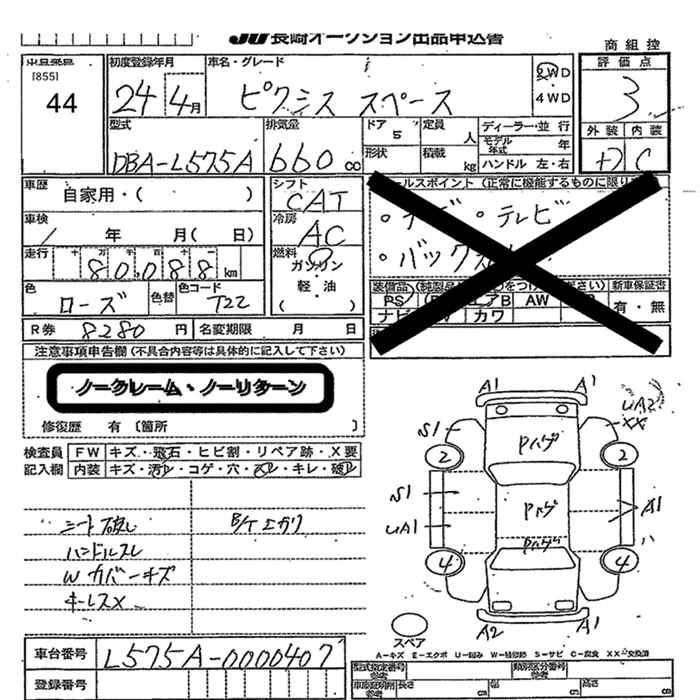 JU 長崎オークション出品申込書
商 組 控
出品番号
[855]
44
初度登録年月
24 4月
車名・グレード
ピクシス スペース
2WD
・
4WD
評 価 点
3
外 装 内 装
C
型式
DBA-L575A
排気量
660 cc
ドア
5
定員
人
形状
積載
kg
ディーラー・並 行
モデル年式 年
ハンドル 左・右
車歴
自家用・( )
シフト
CAT
車検
年 月( 日)
冷房
AC
走行
80,088 km
燃料
ガソリン
・
軽・油
( )
色
ローズ
色替
色コード
T22
R券 8280 円
名変期限 月 日
セールスポイント (正常に機能するものに限り)
・ナビ ・テレビ
・バック
新車保証書
有・無
PS
エアB
AW
ナビ
カワ
注意事項申告欄 (不具合内容等は具体的に記入して下さい)
ノークレーム・ノーリターン
修復歴 有 〔箇所 〕
検査員
記入欄
FW キズ・飛石・ヒビ割・リペア跡・X要
内装 キズ・汚レ・コゲ・穴・スレ・キレ・破レ
シート破レ
ハンドルスレ
W カバーキズ
キーレスX
B/T エガリ
A1 A1
UA2
XX
S1
Pハゲ
2 2
S1
Pハゲ
A1
UA1
Pハゲ
4 4
A2 A1
スペア
A-キズ E-エクボ U-凹み W-補修跡 S-サビ C-腐食 XX-交換済
車台番号 L575A-0000407
登録番号
型式指定番号
参考
類別区分番号
参考
長さ
幅
高さ